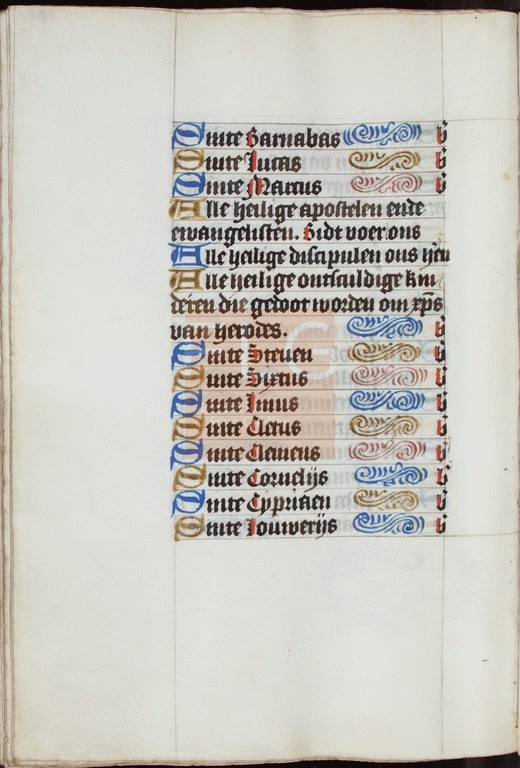 Sinte Barnabas b
Sinte Lucas b
Sinte Marcus b
Alle heilige apostelen ende
ewangelisten. bidt voer ons
Alle heilige discipulen ons heren
Alle heilige onsculdige kin
deren die gedoot worden om xps
van herodes. b
Sinte Steuen b
Sinte Sixtus b
Sinte Linus b
Sinte Cletus b
Sinte Clemens b
Sinte Cornelijs b
Sinte Cypriaen b
Sinte Louwerijs b